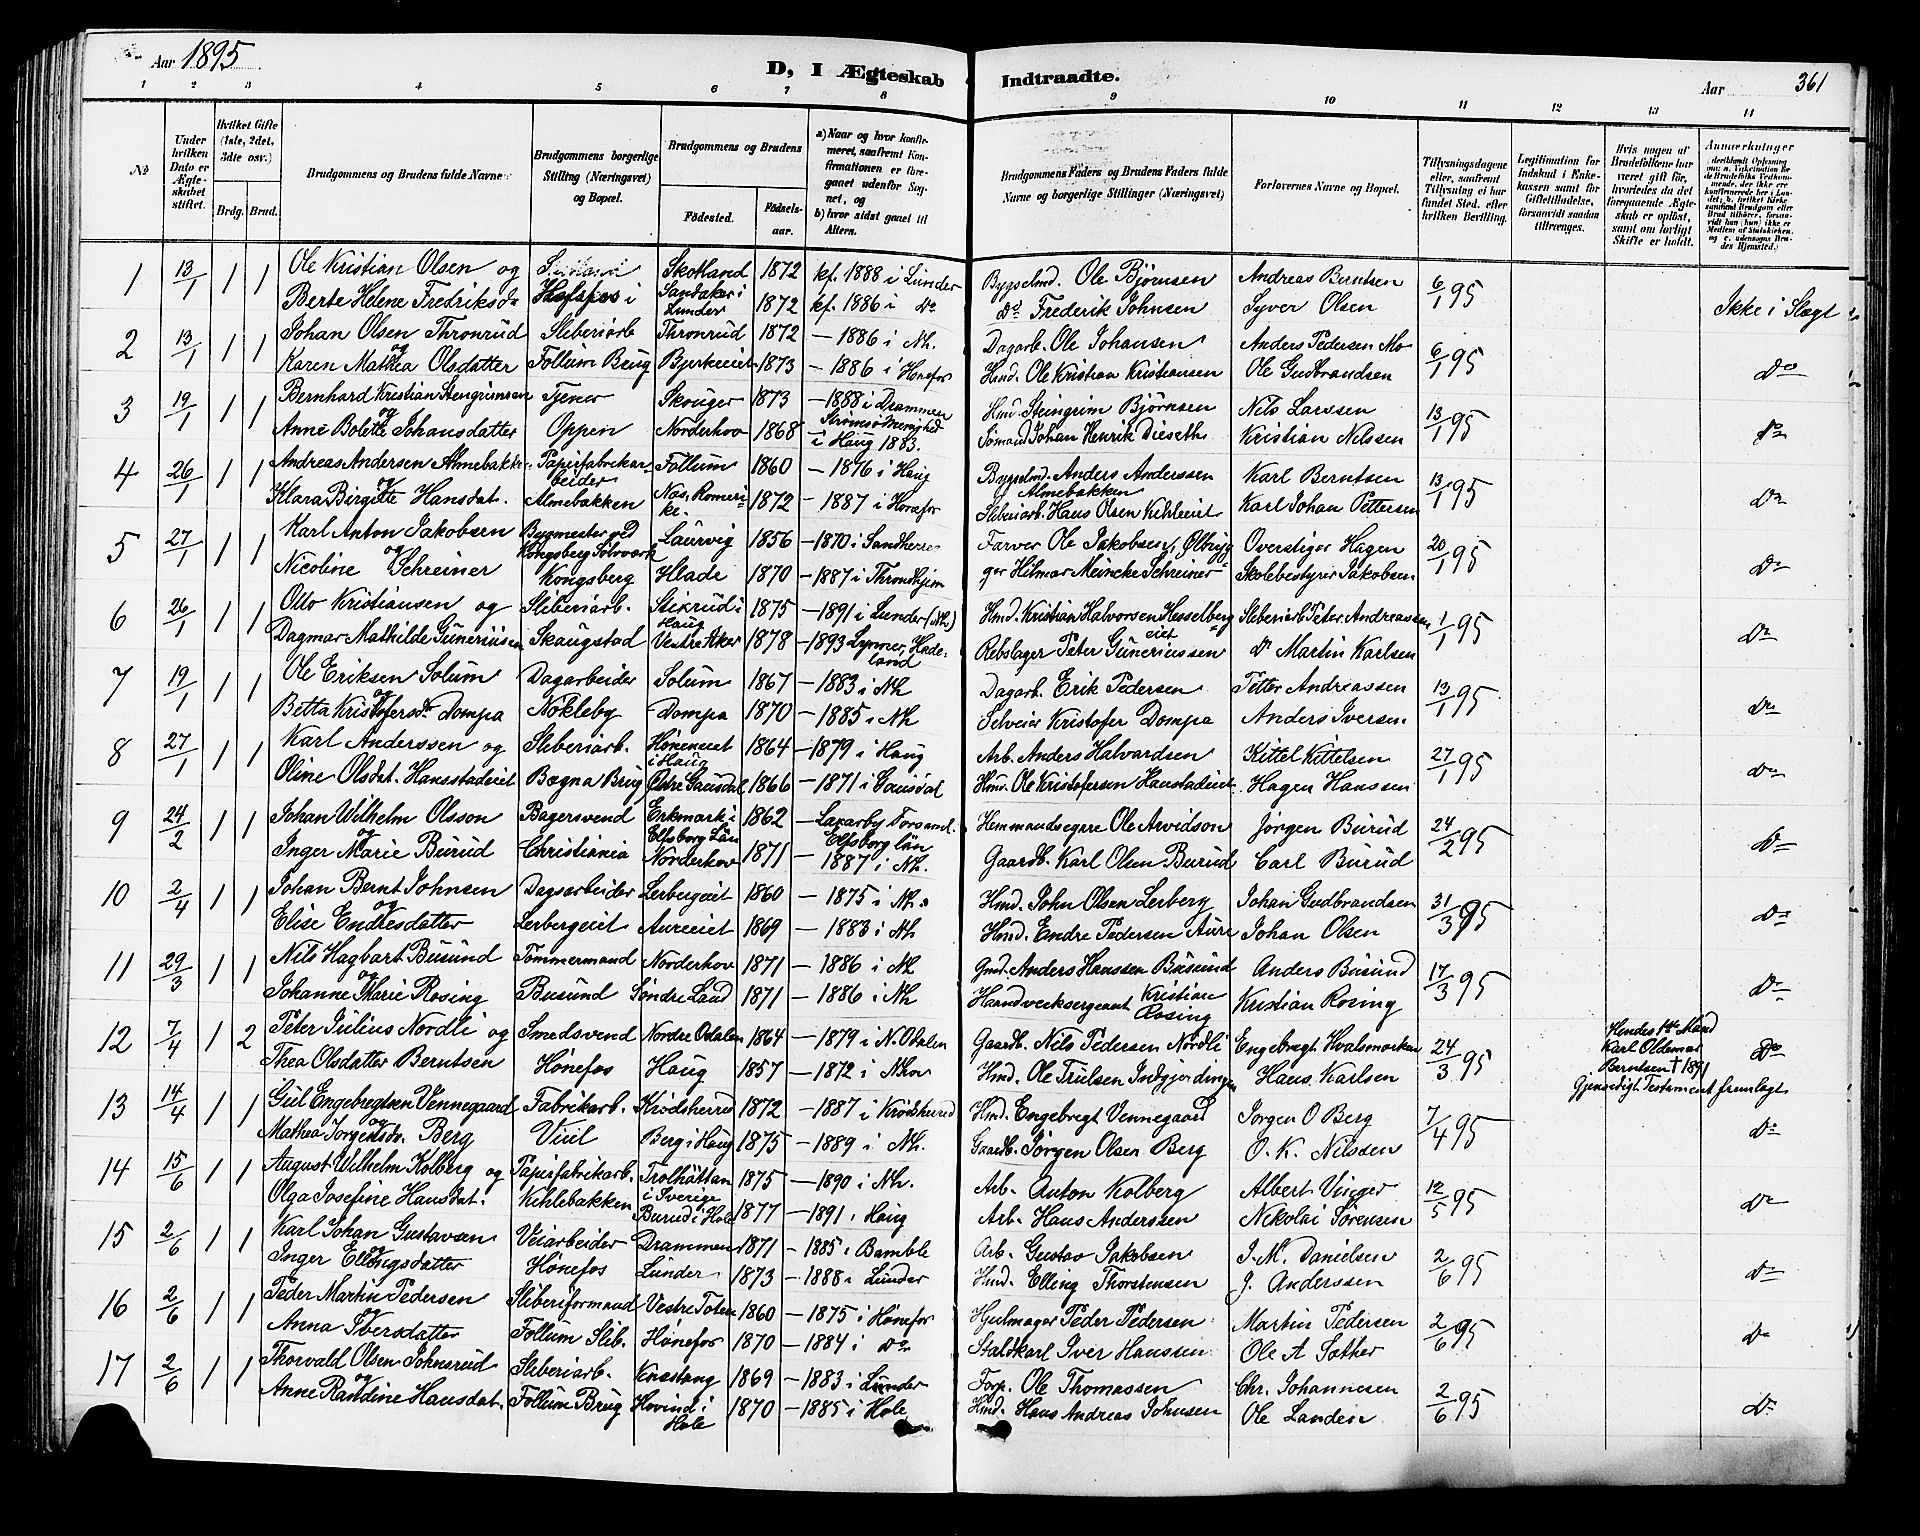 Aar 1895.
D, I Ægteskab Indtraadte.
Aar 361
1 2 3 4 5 6 7 8 9 10 11 12 13 14
No
Under hvilken Dato er Ægteskabet stiftet.
Hvilket Gifte (1ste, 2det, 3die osv.)
Brdg. Brud.
Brudgommens og Brudens fulde Navne
Brudgommens borgerlige Stilling (Næringsvei) og Bopæl.
Brudgommens og Brudens
Fødested. Fødselsaar.
a) Naar og hvor konfirmeret, saafremt Konfirmationen er foregaaet udenfor Sognet, og
b) hvor sidst gaaet til Alters.
Brudgommens Faders og Brudens Faders fulde Navne og borgerlige Stillinger (Næringsvei)
Forlovernes Navne og Bopæl.
Tillysningsdagene eller, saafremt Tillysning ei har fundet Sted, efter hvilken Bevilling.
Legitimation for Indskud i Enkekassen samt for Giftetilladelse, forsaavidt saadan tiltrænges.
Hvis nogen af Brudefolkene har været gift før, hvorledes da det foregaaende Ægteskab er opløst, samt om lovligt Skifte er holdt.
Anmærkninger
1 13/1 1 1 Ole Kristian Olsen og Skotland 1872 kf. 1888 i Lunder Bygselmd. Ole Bjørnsen Andreas Berntsen 6/1 95
Berte Helene Fredriksdr Sandaker i Lunder 1872 kf. 1886 i Do Do Frederik Johnsen Syver Olsen Ikke i Slegt
2 13/1 1 1 Johan Olsen Thronrud Sliberiarb Thronrud 1872 – 1886 i Nh. Dagarb. Ole Johansen Anders Pedersen Mo 6/1 95
og Karen Mathea Olsdatter Follum Brug Bjerkeeiet 1873 – 1886 i Hønefos Hmd. Ole Kristian Kristiansen Ole Gudbrandsen Do
3 19/1 1 1 Bernhard Kristian Stengrimsen Tjener Skouger 1873 – 1888 i Drammen Strømsø Menighed Hmd. Steingrim Bjørnsen Nils Larssen 13/1 95
og Anne Bolette Johansdatter Oppen Norderhov 1868 – i Haug 1883. Sømand Johan Henrik Dieseth Kristian Nilssen Do
4 26/1 1 1 Andreas Andersen Almebakken Papirfabrikarbeider Follum 1860 – 1876 i Haug Bygselmd. Anders Anderssen Almebakken Karl Berntsen 13/1 95
og Klara Birgitte Hansdat. Almebakken Nas, Romerike. 1872 – 1887 i Hønefos Sliberiarb. Hans Olsen Kihleeiet Karl Johan Pettersen Do
5 27/1 1 1 Karl Anton Jakobsen Bygmester ved Kongsberg Sølvværk Laurvig 1856 – 1870 i Sandherred Farver Ole Jakobsen, Ølbryg= Overstiger Hagen 20/1 95
og Nicoline Schreiner Kongsberg Hlade 1870 – 1887 i Throndhjem ger Hilmar Meincke Schreiner Skolebestyrer Jakobsen Do
6 26/1 1 1 Otto Kristiansen og Sliberiarb. Stixrud i Haug 1875 – 1891 i Lunder (Nh.) Hmd. Kristian Halvorsen Hesselberg=eiet Sleberiarb Peter Andreassen 1/1 95
Dagmar Mathilde Guneriusen Skaugstad Vestre Aker 1878 – 1893 Lynner, Hadeland Rebslager Peter Guneriussen Do Martin Karlsen Do
7 19/1 1 1 Ole Eriksen Solum Dagarbeider Solum 1867 – 1883 i Nh Dagarb. Erik Pedersen Petter Andreassen 13/1 95
og Betta Kristofersdr Dompa Nökleby Dompa 1870 – 1885 i Nh Selveier Kristofer Dompa Anders Iversen Do
8 27/1 1 1 Karl Anderssen og Sleberiarb. Höneneiet i Haug 1864 – 1879 i Haug Arb. Anders Halvardsen Kittel Kittelsen 27/1 95
Oline Olsdat. Hansstadeiet Bægna Brug Östre Gausdal 1866 – 1871 i Gausdal Hmd. Ole Kristofersen Hanstadeiet Hagen Hanssen Do
9 24/2 1 1 Johan Wilhelm Olsson Bagersvend Enkmark i Elfsborg Län 1862 – Laxarby Forsaml. Elfsborg län Hemmandsegare Ole Arvidson Jørgen Burud 24/2 95
og Inger Marie Burud Christiania Norderhov 1871 – 1887 i Nh. Gaardb. Karl Olsen Burud Carl Burud Do
10 2/4 1 1 Johan Bernt Johnsen Dagsarbeider Lerbergeiet 1860 – 1875 i Nh. Hmd. John Olsen Lerberg Johan Gudbrandsen 31/3 95
og Elise Endresdatter Lerbergeiet Aureeiet 1869 – 1883 i Nh Hmd. Endre Pedersen Aure Johan Olsen Do
11 29/3 1 1 Nils Hagbart Busund Tømmermand Norderhov 1871 – 1886 i Nh Gmd. Anders Hanssen Busund Anders Busund 17/3 95
og Johanne Marie Rosing Busund Søndre Land 1871 – 1886 i Nh Haandverksergeant Kristian Rosing Kristian Rosing Do
12 7/4 1 2 Peter Julius Nordli og Smedsvend Nordre Odalen 1864 – 1879 i N. Odalen Gaardb. Nils Pedersen Nordli Engebregt Hvalsmarken 24/3 95 Hendes 1ste Mand Karl Oldemar Berntsen † 1891 Gjensidigt Testament fremlagt
Thea Olsdatter Berntsen Hönefos Haug 1857 – 1872 i Nhov Hmd. Ole Trulsen Indgjerdingen Hans Karlsen Do
13 14/4 1 1 Gul Engebregtsen Vennegaard Fabrikarb. Krödsherred 1872 – 1887 i Krödsherred Hmd. Engebregt Vennegaard Jørgen O Berg 7/4 95
og Mathea Jorgensdr. Berg Viul Berg i Haug 1875 – 1889 i Nh. Gaardb. Jörgen Olsen Berg O. K. Nilssen Do
14 15/6 1 1 August Wilhelm Kolberg og Papirfabrikarb. Trolhättan i Sverige 1875 – 1890 i Nh. Arb. Anton Kolberg Albert Vinger 12/5 95
Olga Josefine Hansdat. Kihlebakken Burud i Hole 1877 – 1891 i Haug Arb. Hans Anderssen Nikolai Sørensen Do
15 2/6 1 1 Karl Johan Gustavsen Veiarbeider Drammen 1871 – 1885 i Bamble Arb. Gustav Jakobsen J. M. Danielsen 2/6 95
og Inger Ellingsdatter Hönefos Lunder 1873 – 1888 i Lunder Hmd. Elling Thorstensen J. Anderssen Do
16 2/6 1 1 Peder Martin Pedersen Sliberiformand Vestre Toten 1860 – 1875 i Hønefos Hjulmager Peder Pedersen Martin Pedersen 2/6 95
Anna Iversdatter Follum Slib. Hønefos 1870 – 1884 i Do Staldkarl Iver Hanssen Ole A Sother Do
17 2/6 1 1 Thorvald Olsen Johnsrud Sleberiarb. Knestang 1869 – 1883 i Lunder Forp. Ole Thomassen Chr. Johannesen 2/6 95
og Anne Randine Hansdat. Follum Brug Hovind i Hole 1870 – 1885 i Hole Hmd. Hans Andreas Johnsen Ole Landen Do